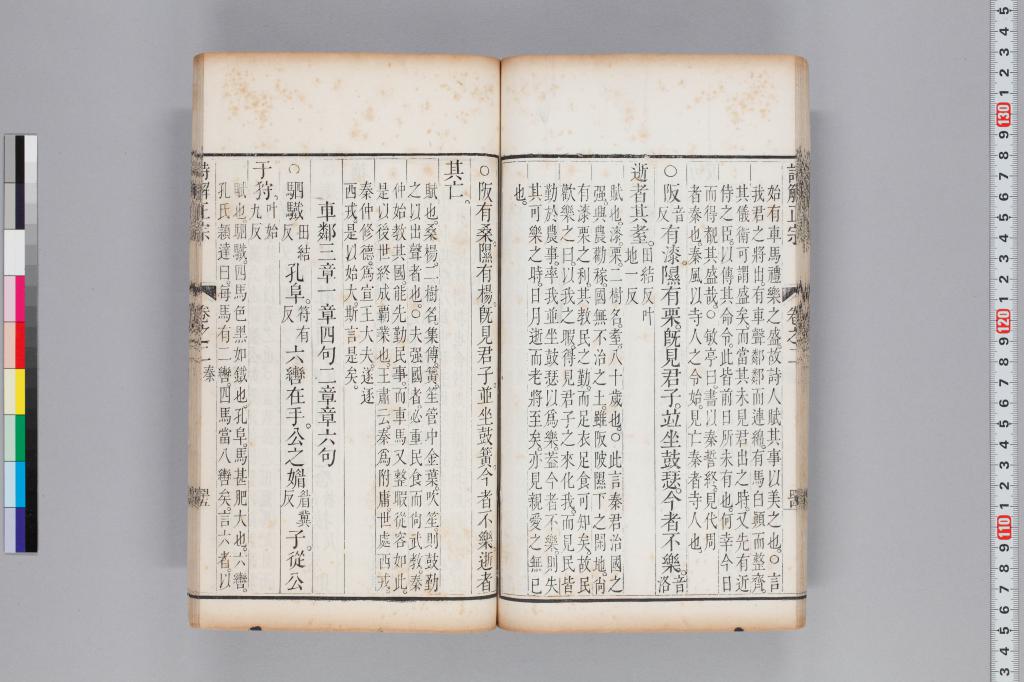 始有車馬禮樂之盛故詩人賦其事以美之也。○言
我君之將出。有車聲鄰鄰而連續。有馬白顛而整齊。
其儀衛可謂盛矣。而當其未見君出之時。又先有近
侍之臣。以傳其命令。此皆前日所未有也。何幸今日
而得覩其盛哉。○敏亭曰。書以秦誓終。見代周
者秦也。秦風以寺人之令始。見亡秦者寺人也。
○阪音反有漆。隰有栗。旣見君子。竝坐鼓瑟。今者不樂。音洛
逝者其耋。田結反叶地一反
賦也。漆栗。二樹名。耋。八十歲也。○此言秦君治國之
强。與農勸稼。國無不治之土。雖阪陂隰下之閒地。尙
有漆栗之利。其教民之勤。而足衣足食可知矣。故民
歡樂之曰。以我之暇得見君子之來化我。而見民皆
勤於農事。率我並坐鼓瑟以爲樂。蓋今者不樂。則失
其可樂之時。日月逝而老將至矣。亦見親愛之無已
也。
○阪有桑。隰有楊。旣見君子。並坐鼓簧。今者不樂。逝者
其亡。
賦也。桑楊。二樹名。集傳。簧。笙管中金葉。吹笙。則鼓動
之以出聲者也。○夫强國者必重民食而尙武教。秦
仲始教其國能先勤民事。而車馬又整暇從容如此。
是以後世終成覇業也。王肅云。秦爲附庸。世處西戎。
秦仲修德。爲宣王大夫。遂逐
西戎。是以始大。斯言是矣。
車鄰三章一章四句二章章六句
○駟驖田結反孔阜。符有反六轡在手。公之媚眉冀反子。從公
于狩。叶始九反
賦也。駟驖。四馬色黑如鐵也。孔阜。馬甚肥大也。六轡。
孔氏頴達曰。每馬有二轡。四馬當八轡矣。言六者。以
詩解正宗
卷之二
秦